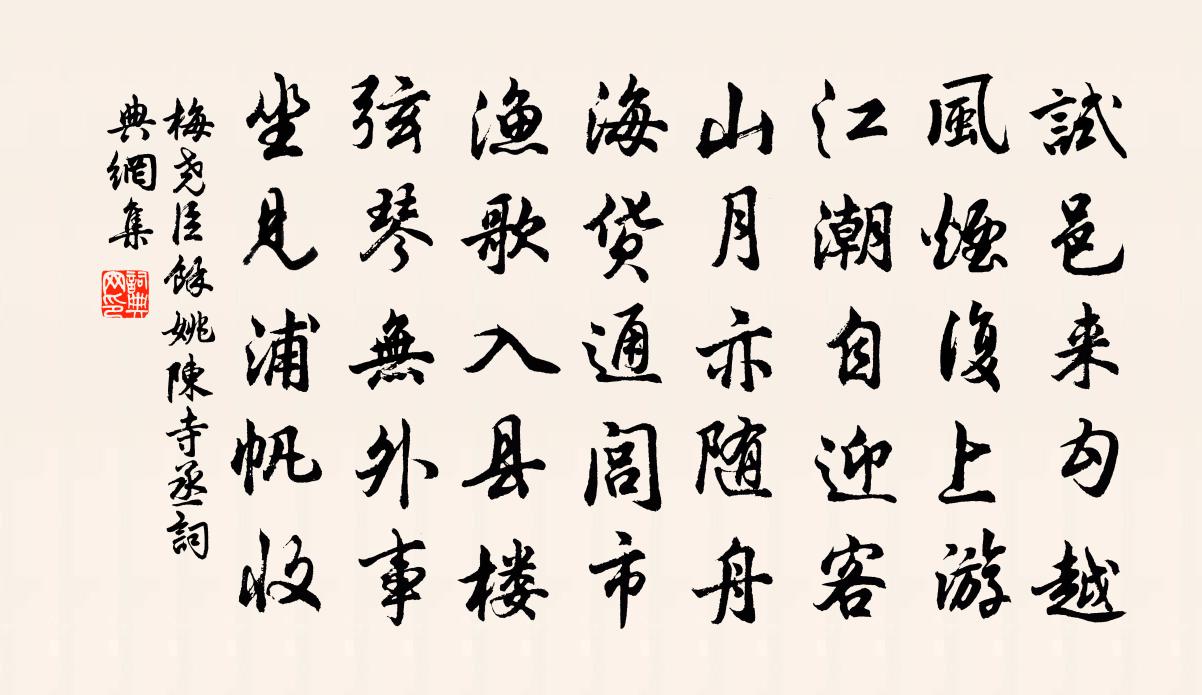 試邑来勾越
風煙復上游
江潮自迎客
山月亦随舟
海货通閭市
渔歌入县楼
弦琴無外事
坐见浦帆收
梅尧臣馀姚陳寺丞詞
典網集
詞典网印